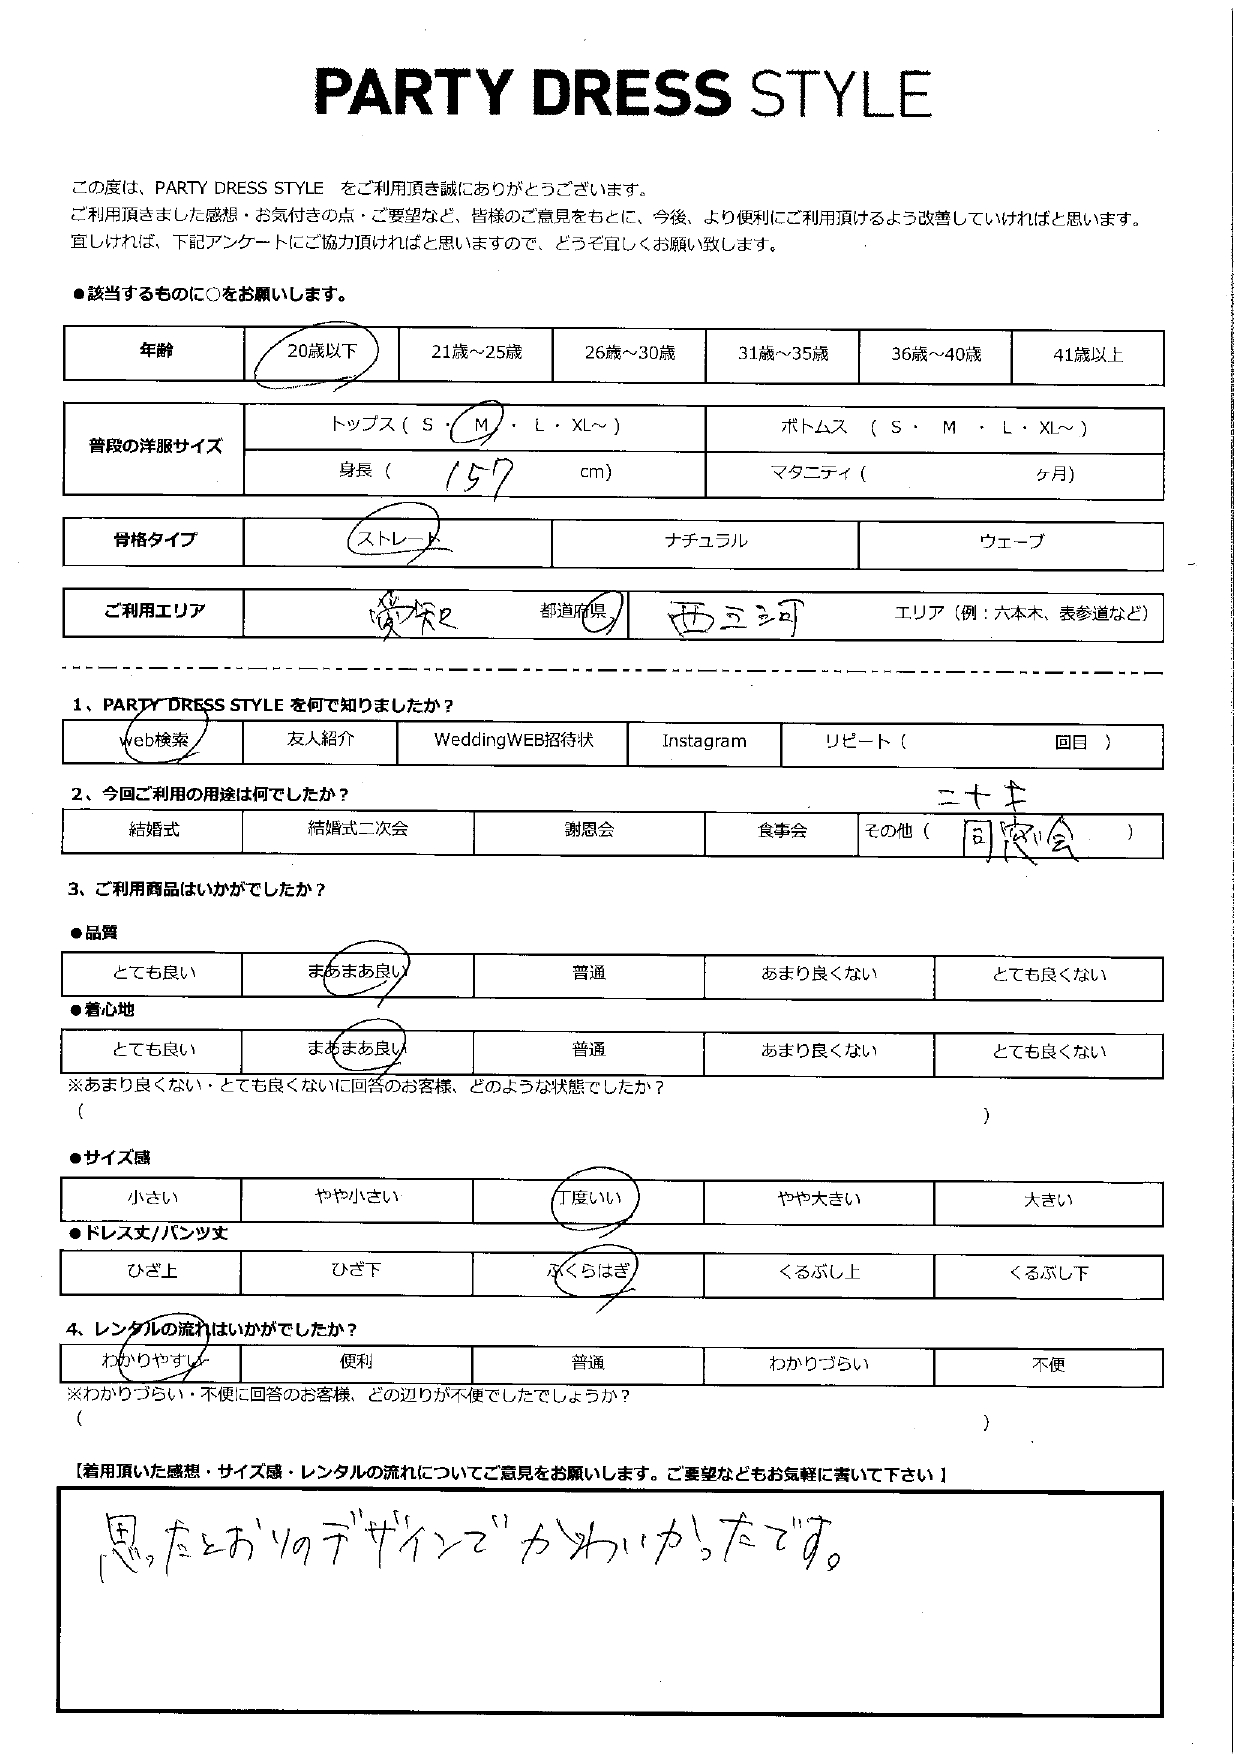 PARTY DRESS STYLE
この度は、PARTY DRESS STYLE をご利用頂き誠にありがとうございます。
ご利用頂きました感想・お気付きの点・ご要望など、皆様のご意見をもとに、今後、より便利にご利用頂けるよう改善していければと思います。
宜しければ、下記アンケートにご協力頂ければと思いますので、どうぞ宜しくお願い致します。
●該当するものに○をお願いします。
年齢 20歳以下 21歳～25歳 26歳～30歳 31歳～35歳 36歳～40歳 41歳以上
普段の洋服サイズ
トップス ( S ・ M ・ L ・ XL～ ) ボトムス ( S ・ M ・ L ・ XL～ )
身長 ( 157 cm) マタニティ ( ヶ月)
骨格タイプ ストレート ナチュラル ウェーブ
ご利用エリア 愛知 都道府県 西三河 エリア（例：六本木、表参道など）
1、PARTY DRESS STYLE を何で知りましたか？
web検索 友人紹介 WeddingWEB招待状 Instagram リピート ( 回目 )
2、今回ご利用の用途は何でしたか？
二十才
結婚式 結婚式二次会 謝恩会 食事会 その他 ( 同窓会 )
3、ご利用商品はいかがでしたか？
●品質
とても良い まあまあ良い 普通 あまり良くない とても良くない
●着心地
とても良い まあまあ良い 普通 あまり良くない とても良くない
※あまり良くない・とても良くないに回答のお客様、どのような状態でしたか？
( )
●サイズ感
小さい やや小さい 丁度いい やや大きい 大きい
●ドレス丈/パンツ丈
ひざ上 ひざ下 ふくらはぎ くるぶし上 くるぶし下
4、レンタルの流れはいかがでしたか？
わかりやすい 便利 普通 わかりづらい 不便
※わかりづらい・不便に回答のお客様、どの辺りが不便でしたでしょうか？
( )
【着用頂いた感想・サイズ感・レンタルの流れについてご意見をお願いします。ご要望などもお気軽に書いて下さい】
思ったとおりのデザインでかわいかったです。